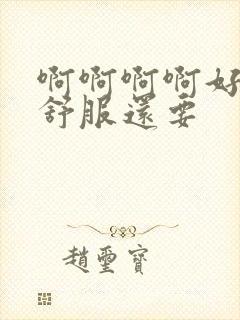 啊啊啊啊好
舒服還要
趙璽寶